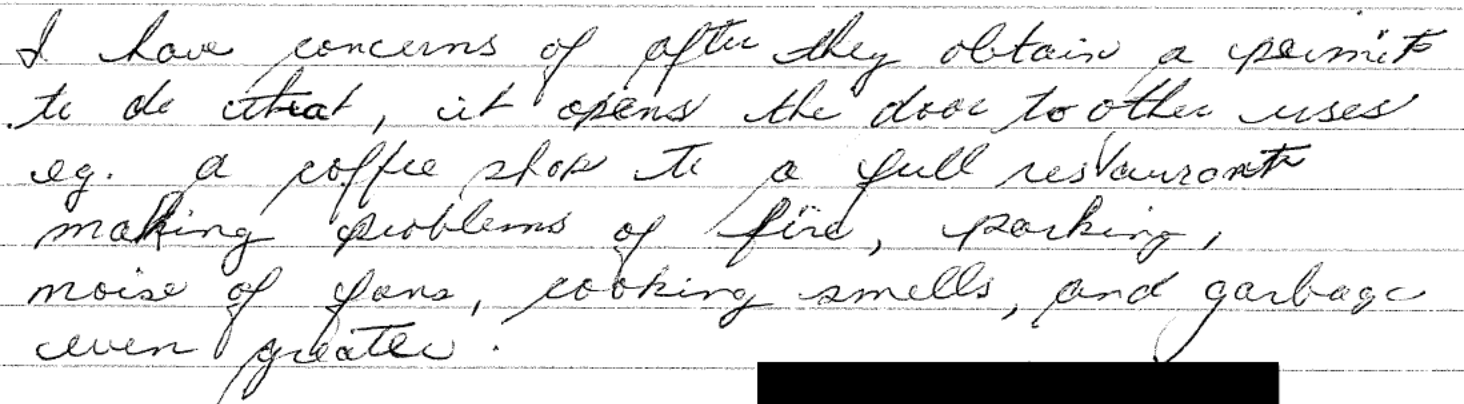 I have concerns of after they obtain a permit
to do that, it opens the door to other uses
eg. a coffee shop to a full restaurant
making problems of fire, parking,
noise of fans, cooking smells, and garbage
even greater.